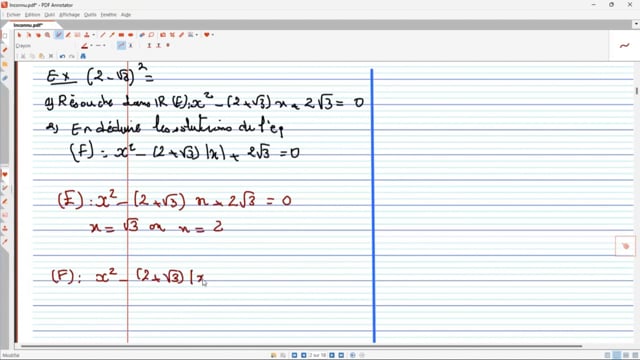 Inconnu.pdf* - PDF Annotator
Fichier Edition Affichage Outils Fenêtre Aide
Inconnu.pdf*
Crayon
Ex (2-√3)² =
1) Résoudre dans IR (E): x² - (2+√3) x + 2√3 = 0
2) En déduire les solutions de l'eq
(F): x² - (2+√3) |x| + 2√3 = 0
(E): x² - (2+√3) x + 2√3 = 0
x = √3 ou x = 2
(F): x² - (2+√3) |x
2 sur 18